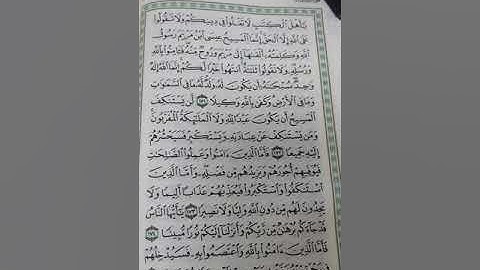 يَٰٓأَهْلَ ٱلْكِتَٰبِ لَا تَغْلُوا۟ فِى دِينِكُمْ وَلَا تَقُولُوا۟
عَلَى ٱللَّهِ إِلَّا ٱلْحَقَّ إِنَّمَا ٱلْمَسِيحُ عِيسَى ٱبْنُ مَرْيَمَ رَسُولُ
ٱللَّهِ وَكَلِمَتُهُۥٓ أَلْقَىٰهَآ إِلَىٰ مَرْيَمَ وَرُوحٌ مِّنْهُ فَـَٔامِنُوا۟ بِٱللَّهِ
وَرُسُلِهِۦ وَلَا تَقُولُوا۟ ثَلَٰثَةٌ ٱنتَهُوا۟ خَيْرًا لَّكُمْ إِنَّمَا ٱللَّهُ إِلَٰهٌ
وَٰحِدٌ سُبْحَٰنَهُۥٓ أَن يَكُونَ لَهُۥ وَلَدٌ لَّهُۥ مَا فِى ٱلسَّمَٰوَٰتِ
وَمَا فِى ٱلْأَرْضِ وَكَفَىٰ بِٱللَّهِ وَكِيلًا ١٧١ لَّن يَسْتَنكِفَ
ٱلْمَسِيحُ أَن يَكُونَ عَبْدًا لِّلَّهِ وَلَا ٱلْمَلَٰٓئِكَةُ ٱلْمُقَرَّبُونَ
وَمَن يَسْتَنكِفْ عَنْ عِبَادَتِهِۦ وَيَسْتَكْبِرْ فَسَيَحْشُرُهُمْ
إِلَيْهِ جَمِيعًا ١٧٢ فَأَمَّا ٱلَّذِينَ ءَامَنُوا۟ وَعَمِلُوا۟ ٱلصَّٰلِحَٰتِ
فَيُوَفِّيهِمْ أُجُورَهُمْ وَيَزِيدُهُم مِّن فَضْلِهِۦ وَأَمَّا ٱلَّذِينَ
ٱسْتَنكَفُوا۟ وَٱسْتَكْبَرُوا۟ فَيُعَذِّبُهُمْ عَذَابًا أَلِيمًا وَلَا
يَجِدُونَ لَهُم مِّن دُونِ ٱللَّهِ وَلِيًّا وَلَا نَصِيرًا ١٧٣ يَٰٓأَيُّهَا ٱلنَّاسُ
قَدْ جَآءَكُم بُرْهَٰنٌ مِّن رَّبِّكُمْ وَأَنزَلْنَآ إِلَيْكُمْ نُورًا مُّبِينًا ١٧٤
فَأَمَّا ٱلَّذِينَ ءَامَنُوا۟ بِٱللَّهِ وَٱعْتَصَمُوا۟ بِهِۦ فَسَيُدْخِلُهُمْ